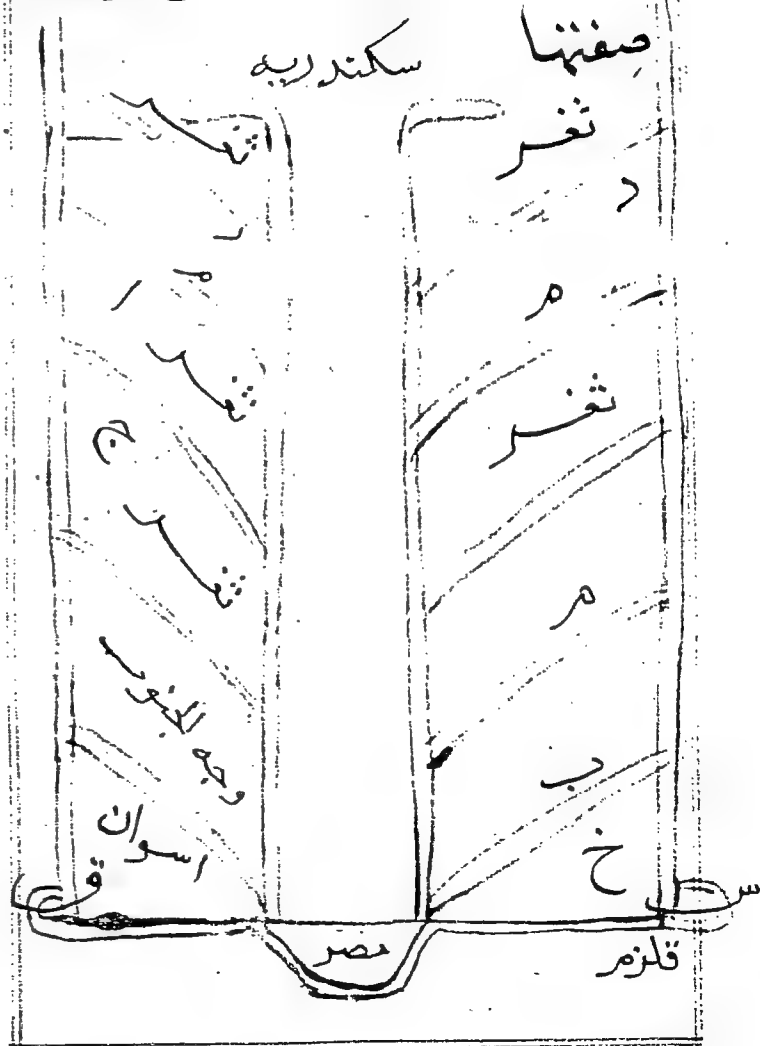 صفتها
سكندريه
ثغر
د
م
ثغر
م
ب
خ
س
قلزم
ثغر
م
ر
ثغر
ج
ثغر
وجه الجنوب
اسوان
ق
مصر